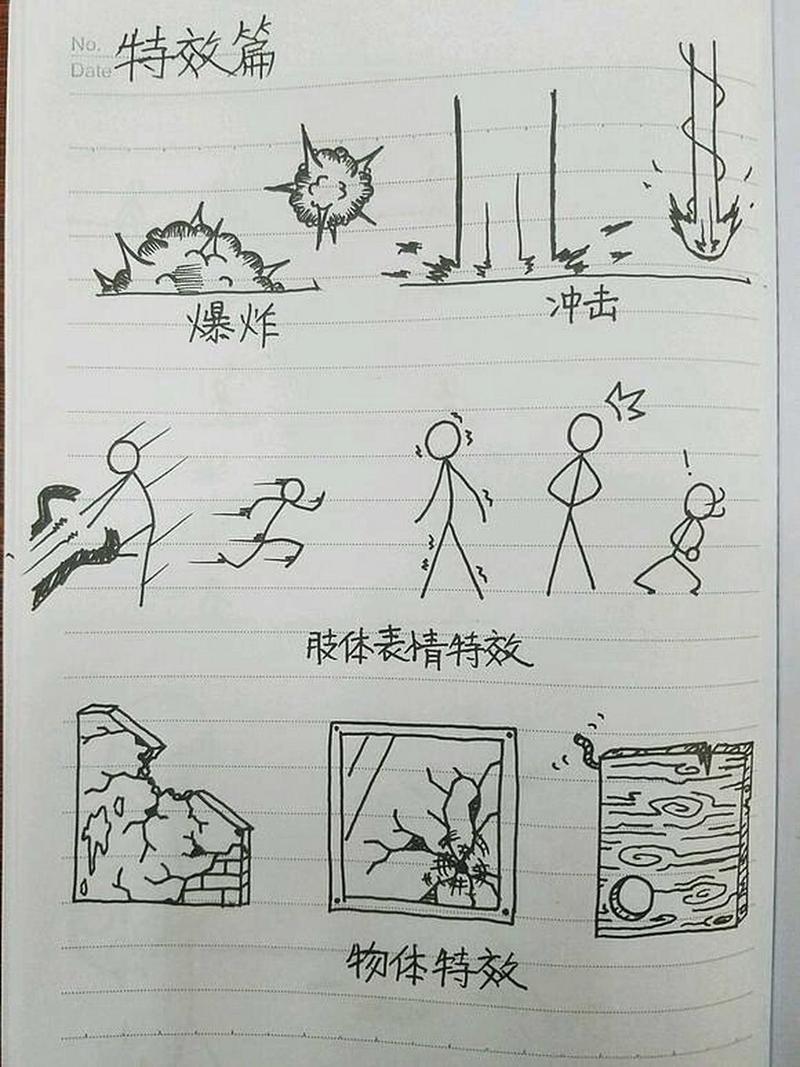 No. 特效篇
Date
爆炸
冲击
肢体表情特效
物体特效